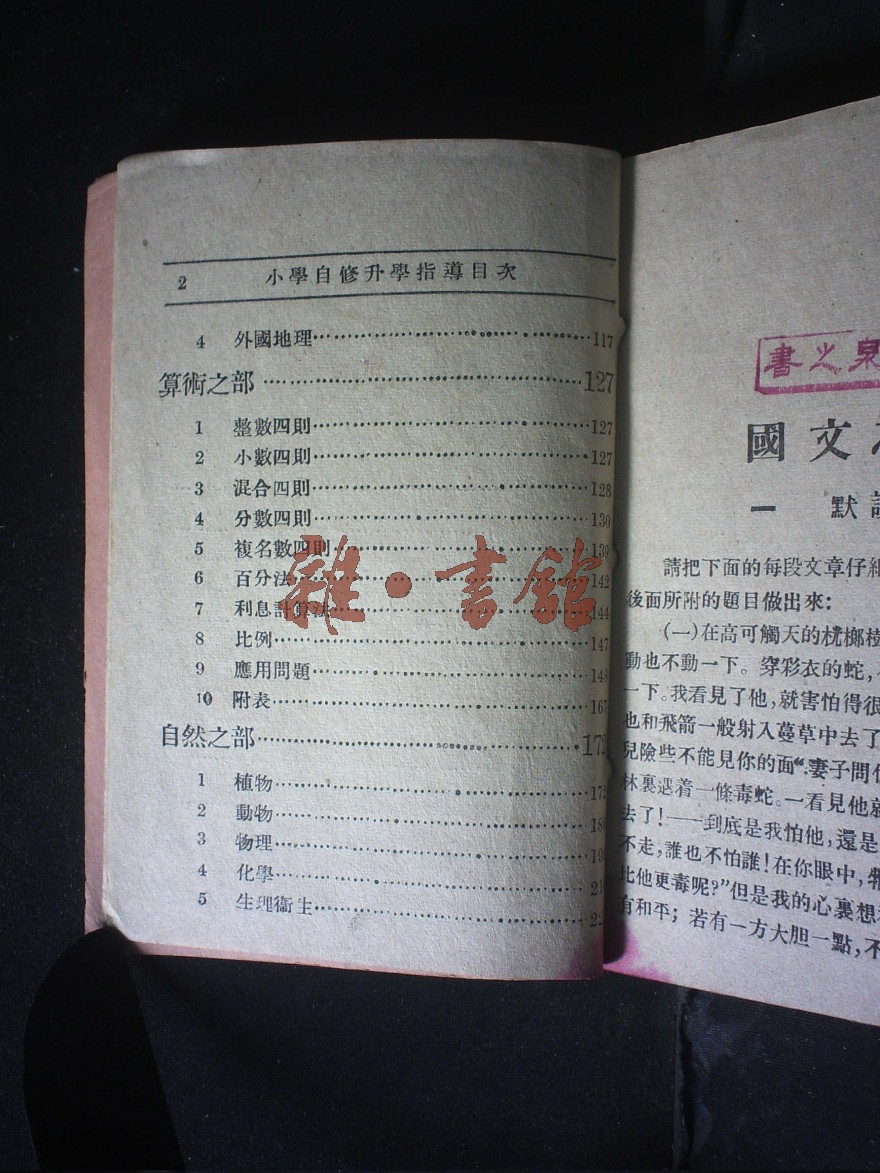 2 小學自修升學指導目次
4 外國地理 117
算術之部 127
1 整數四則 127
2 小數四則 127
3 混合四則 128
4 分數四則 130
5 複名數四則 139
6 百分法 142
7 利息計算法 144
8 比例 147
9 應用問題 148
10 附表 167
自然之部 172
1 植物
2 動物
3 物理
4 化學
5 生理衞生
雜·書館
書之泉
國文
一 默
請把下面的每段文章仔細
後面所附的題目做出來：
（一）在高可觸天的桄榔樹
動也不動一下。穿彩衣的蛇，
一下。我看見了他，就害怕得很
也和飛箭一般射入蔓草中去了
兒險些不能見你的面“.妻子問
林裏遇着一條毒蛇。一看見他就
去了！——到底是我怕他，還是
不走，誰也不怕誰！在你眼中，
比他更毒呢？”但是我的心裏想
有和平；若有一方大胆一點，不